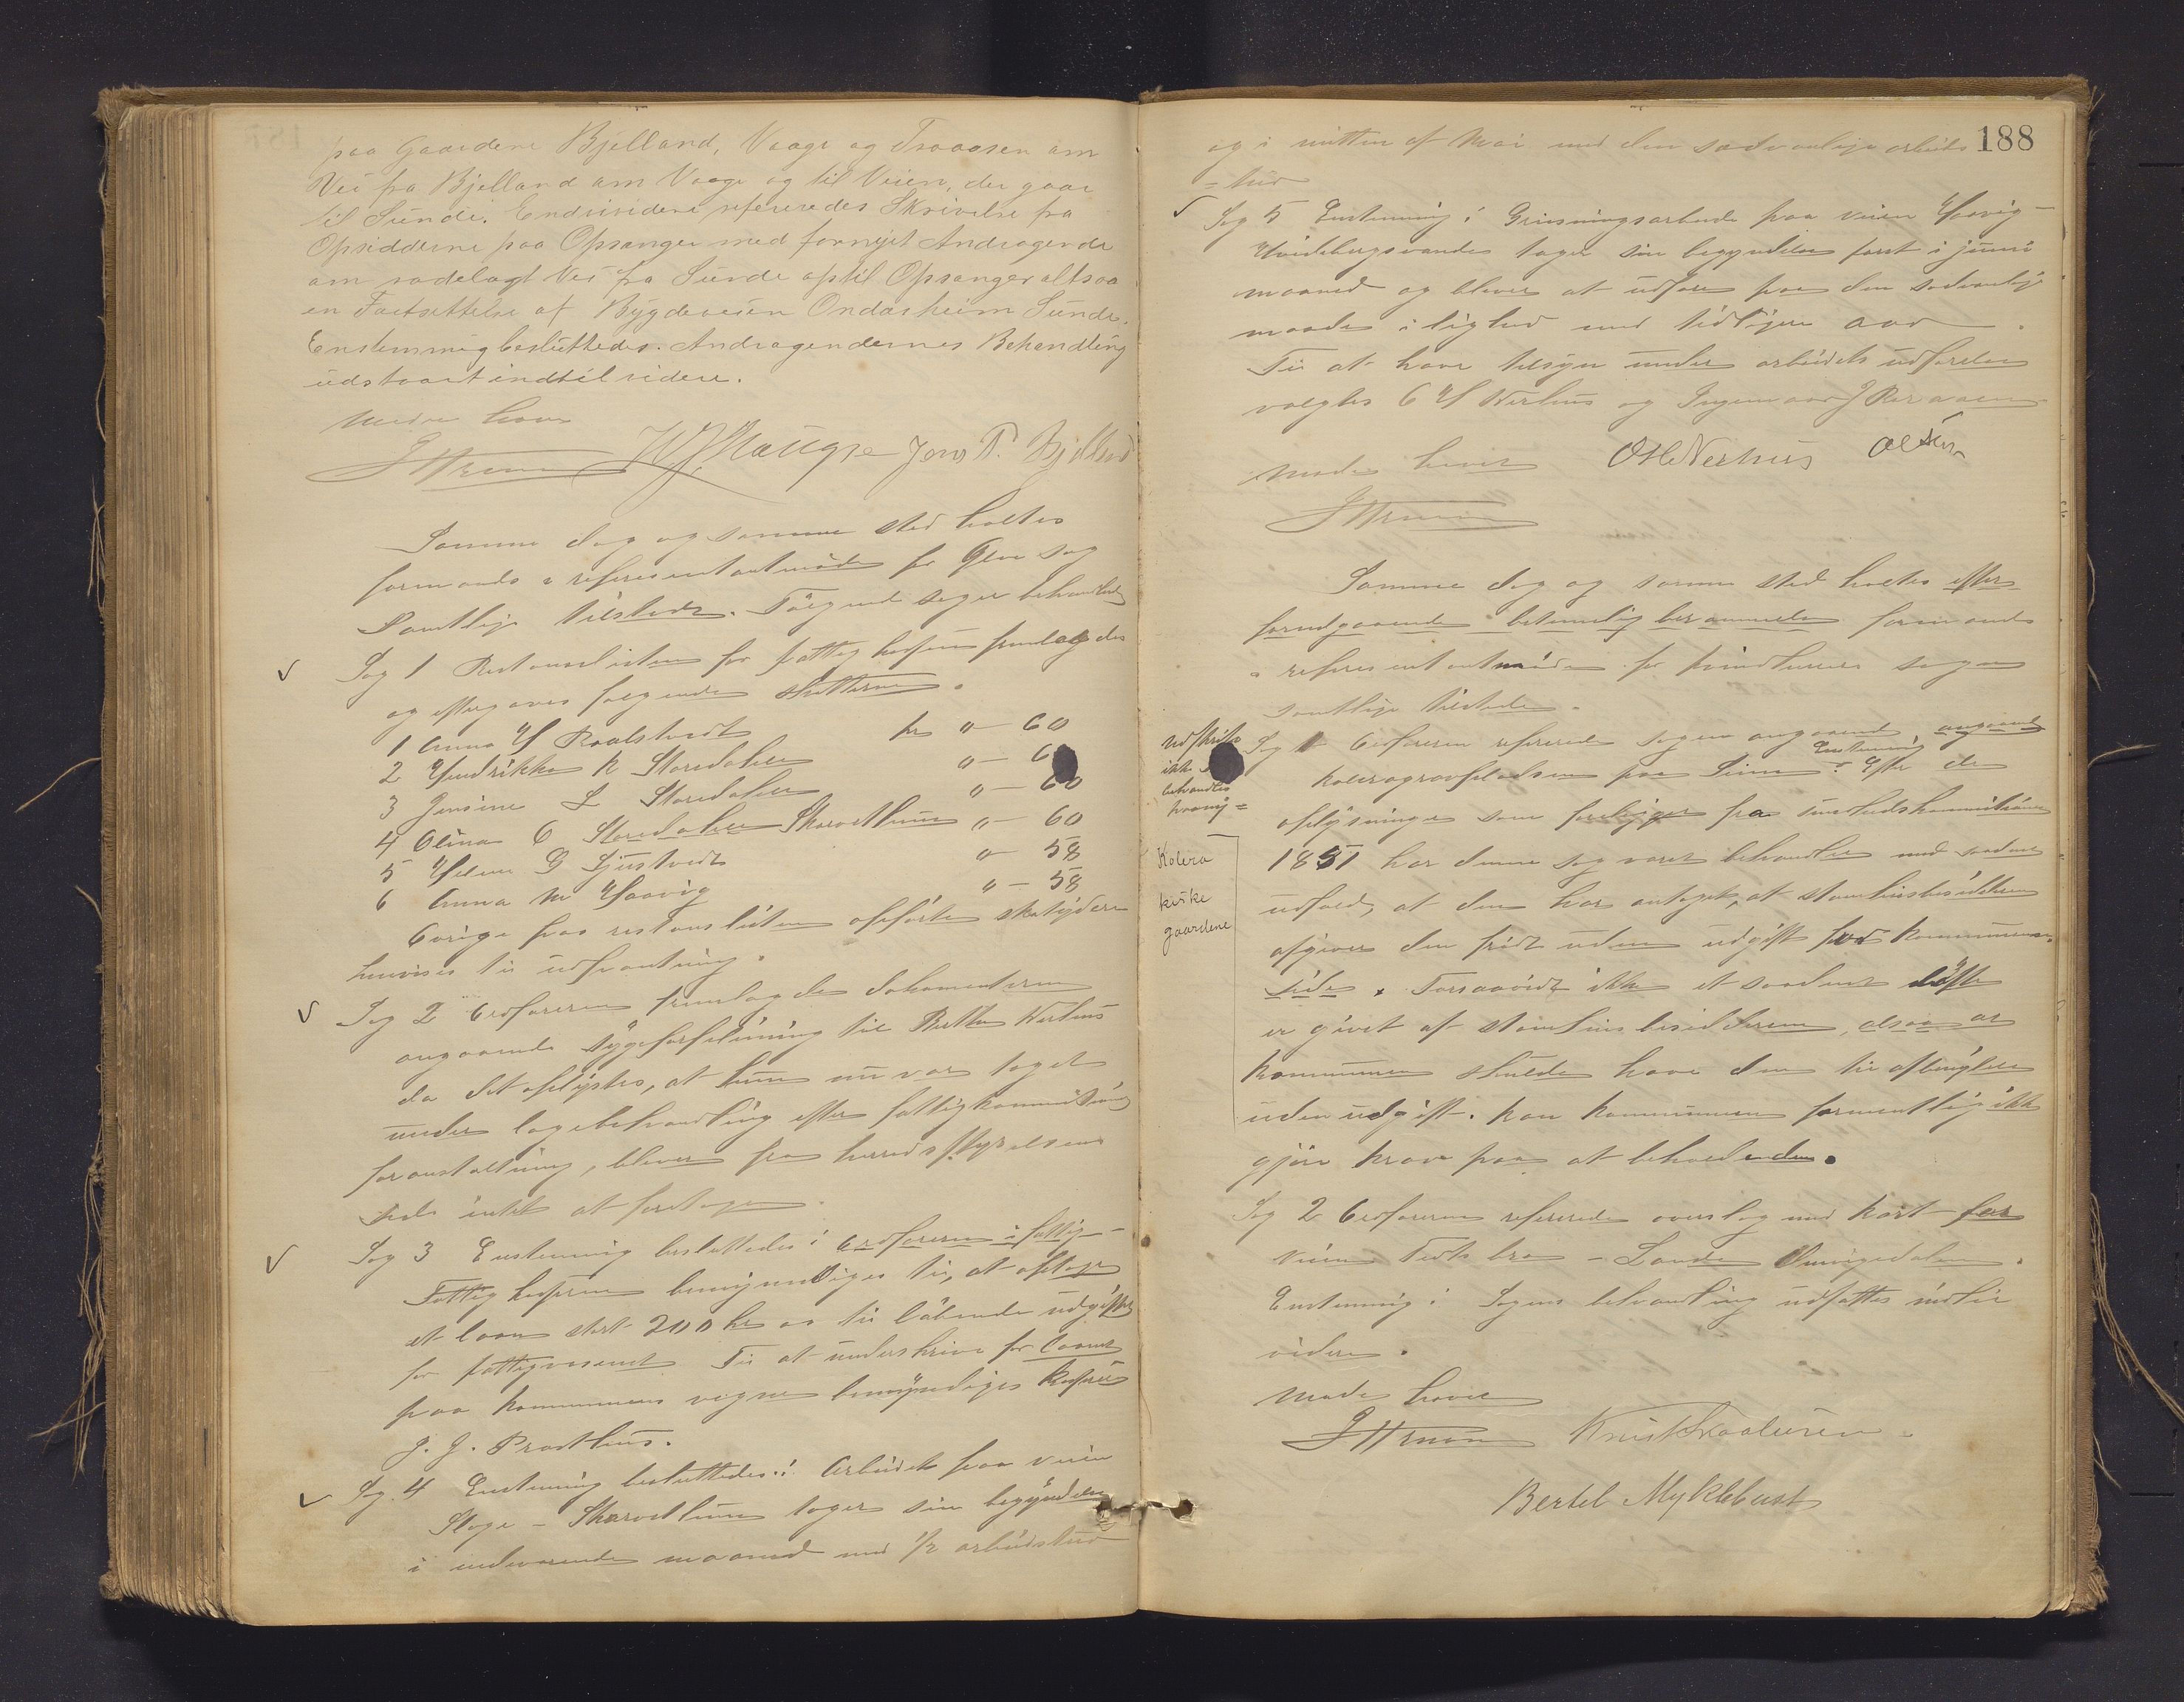 paa Gaardene Bjelland, Vaage og Traaasen om
Vei fra Bjelland om Vaage og til Veien, der gaar
til Sunde. Endvidere refereredes Skrivelse fra
Opsidderne paa Opsanger med fornyet Andragende
om rodelagt Vei fra Sunde optil Opsanger altsaa
en Fortsettelse af Bygdeveien Ondarheim Sunde.
Enstemmig besluttedes. Andragendernes Behandling
udstaar indtil videre.
Mødet hævet
W Hauge Jens T. Bjelland
Samme dag og samme sted holtes
formands & representantmøde for Ølve sogn
Samtlige tilstede. Følgende sager behandledes
Sag 1 Restanselisten for fattigkassen fremlagdes
og eftergaves følgende skatterne.
1 Anna H Raalstvedt kr " - 60
2 Hendrikke K Storedalen " - 6
3 Jensine L Storedalen " - 60
4 Olina O Storedalen Skarvethun " - 60
5 Helene G Ljustvedt " - 58
6 Anna M Haavig " - 58
Øvrige paa restanselisten opførte skatydere
henvises til udpantning.
Sag 2 Ordføreren fremlagde dokumenterne
angaaende sygeforpleining til Berthe Nerhus
da det oplystes, at hun nu var taget
under lægebehandling efter fattigkommisions
foranstaltning, blever fra herredsstyrelsens
side intet at foretage.
Sag 3 Enstemmig besluttedes: Ordføreren i fattig-
Fattigkassereren bemyndiges til, at optage
et laan stort 200 kr as til løbende udgifter
for fattigvæsenet Til at underskrive for laanet
paa kommunens vegne bemyndiges Kaserer
J. J. Prosthus.
Sag 4 Enstemmig besluttedes: Arbeidet paa veien
Slage - Skarvethun tager sin begyndelse
i indeværende maaned med 1/2 arbeidstid
188
og i mitten af Mai med den sædvanlige arbeids
= tid
Sag 5 Enstemmig: Grusningsarbeide paa veien Haavig-
Hvidebergsvandet tager sin begyndelse først i juni
maaned og blever at udføre paa den sædvanlige
maade i lighed med tidligere aar.
Til at have tilsyn under arbeidets udførelse
valgtes O H Nerhus og Ingemaar J Raaaen
Mødet hævet O H Nerhus
Samme dag og samme sted holtes efter
forudgaaende betimelig berammede formands
& representantmøde for Kvindherred sogn
samtlige tilstede.
Udskrift
ikke
behandles
paany =
Kolera
kirke
gaardene
Sag 1 Ordføreren refererede sagen angaaende angaaende
koleragravpladsen paa Sunde: Enstemmig Efter de
oplysninger som foreligger fra sundhedskommisionen
1851 har denne sag været behandlet med saadant
udfald, at den har antaget, at stamhusbesidderen
afgiver den frit uden udgift fra kommunens
side. Forsaavidt ikke et saadant løfte
er givet af stamhusbesidderen, alsaa at
kommunen skulde have den til afbenyttelse
uden udgift. kan kommunen formentlig ikke
gjøre krav paa at beholde den.
Sag 2 Ordføreren refererede overslag med kart for
veien Tvedts bro - Landa Omvigedalen.
Enstemmig: Sagens behandling udsættes indtil
videre.
Mødet hævet
Knut Skaaluren.
Bertel Myklebust